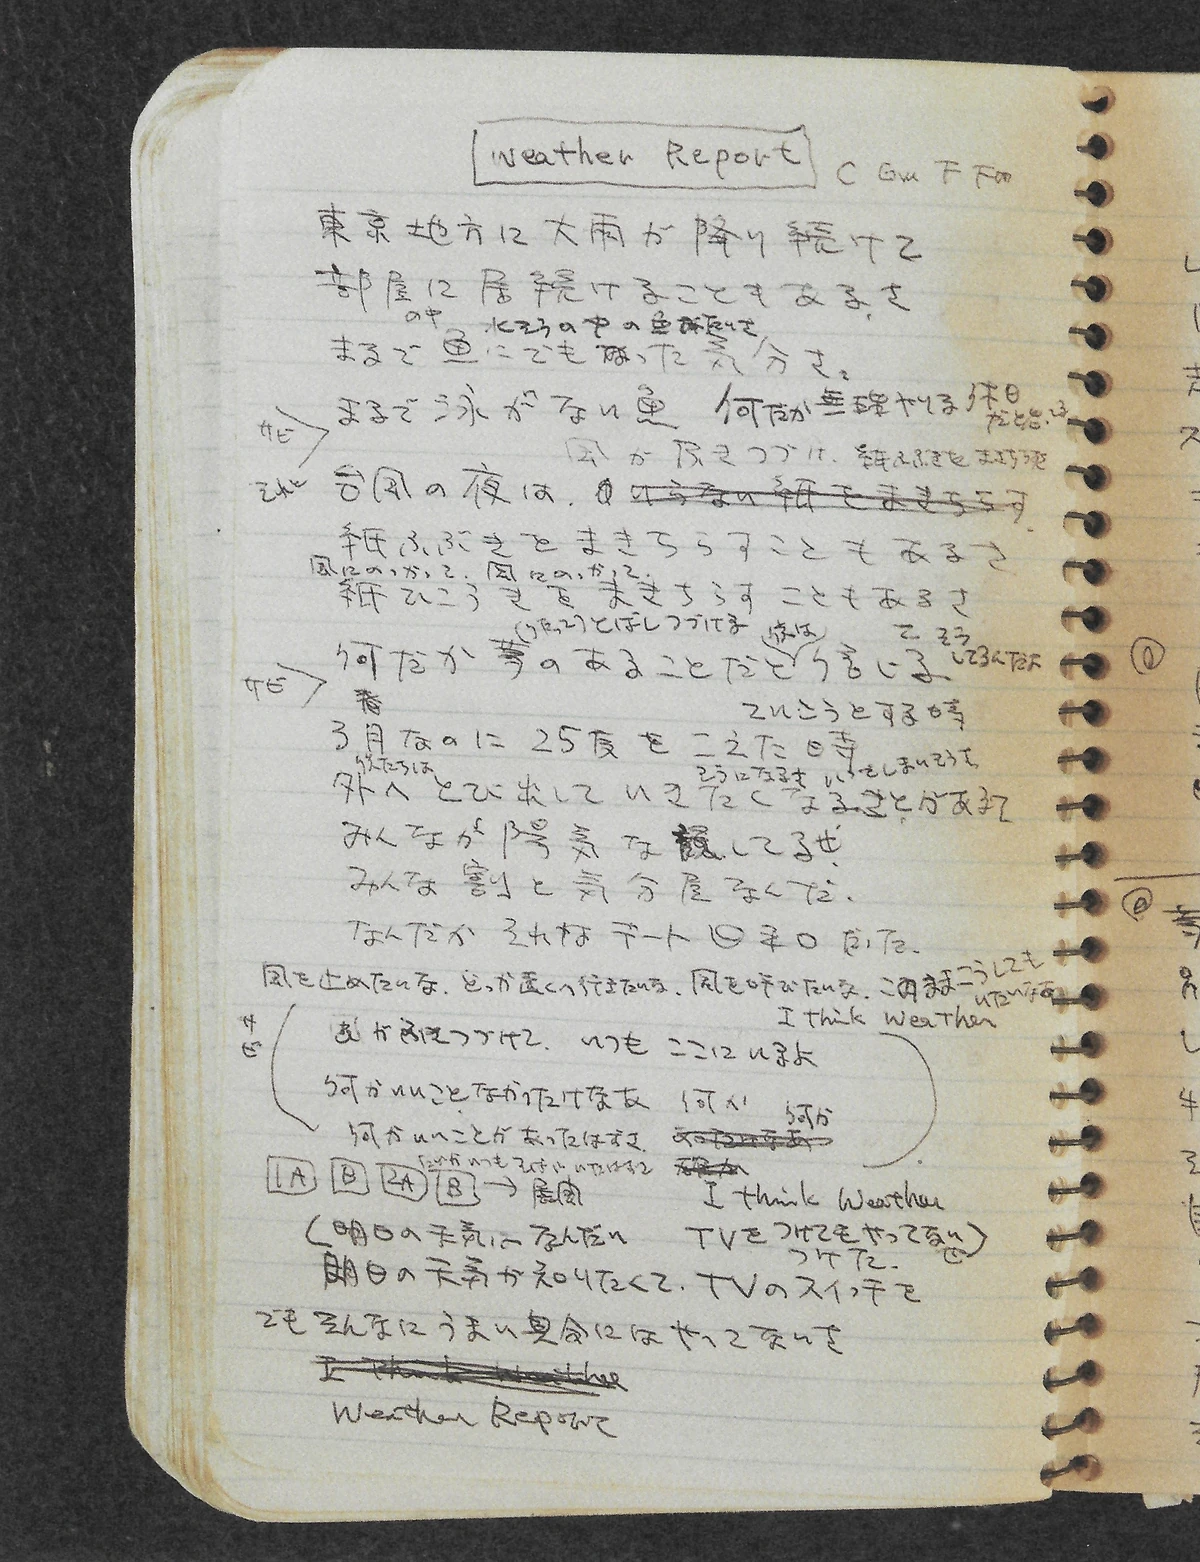 Weather Report C Gm F Fm
東京地方に大雨が降り続けて
部屋に居続けることもあるさ
の中 水そうの中の魚みたいさ
まるで魚にでもなった気分さ。
まるで泳がない魚 何だか無理やりる休日
だと言いる
サビ
風が吹きつづけ、紙ふぶきをまきちらせ
それに 台風の夜は、いらない紙をまきちらす
紙ふぶきをまきちらすこともあるさ
風にのっかって、風にのっかって、
紙ひこうきをまきちらすこともあるさ
とばしつづける 僕は て そう
何だか夢のあることだと信じる してるんだよ
サビ
春 ていこうとする時
3月なのに25度をこえた時
僕たちは そうになるさ いってしまいそうさ
外へとび出していきたくなることがあるて
みんなが陽気な顔してるぜ
みんな割と気分屋なんだ。
なんだかそれなデート日和だった。
風を止めたいな、どっか遠くへ行きたいな、風を呼びたいな、このままこうしても
いたいなあ
I think weather
サビ
が ふきつづけて、いつもここにいるよ
何かいいことなかったけなあ 何か
何か
何かいいことがあったはずさ あったいなあ
だれかいつもそばにいたはずさ
1A B 2A B → 展開
I think Weather
(明日の天気はなんだい TVをつけてもやってない)
つけた。 ぜ
明日の天気が知りたくて、TVのスイッチを
でもそんなにうまい具合にはやってないさ
I think Weather
Weather Report